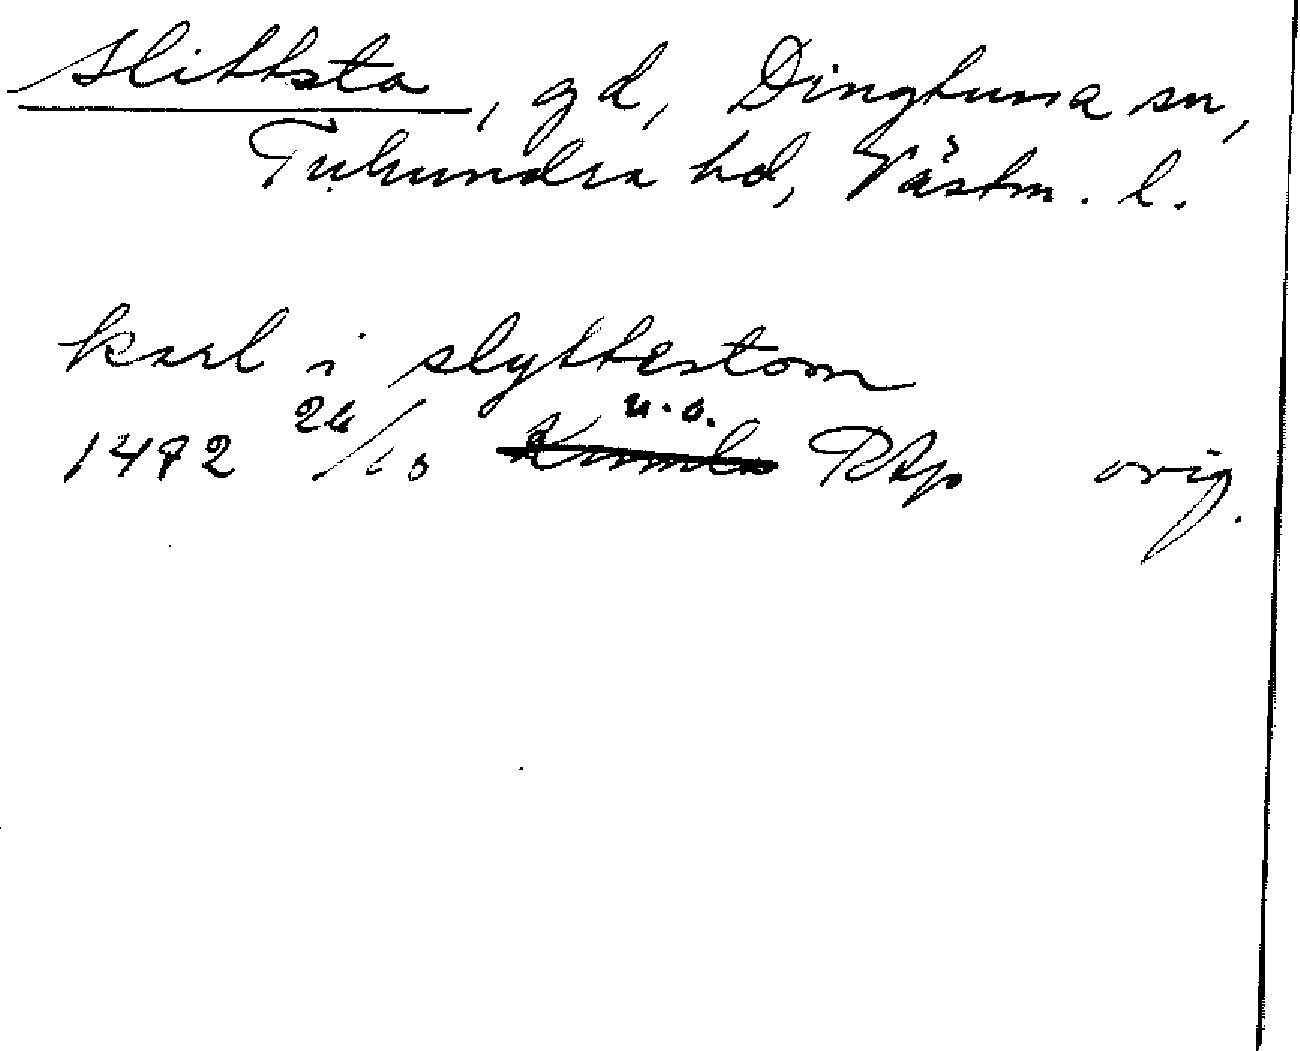 Slittsta, gd, Dingtuna sn,
Tuhundra hd, Västm. l.
karl i slyttestom
u.o.
1492 26/10 Kumla RAp orig.